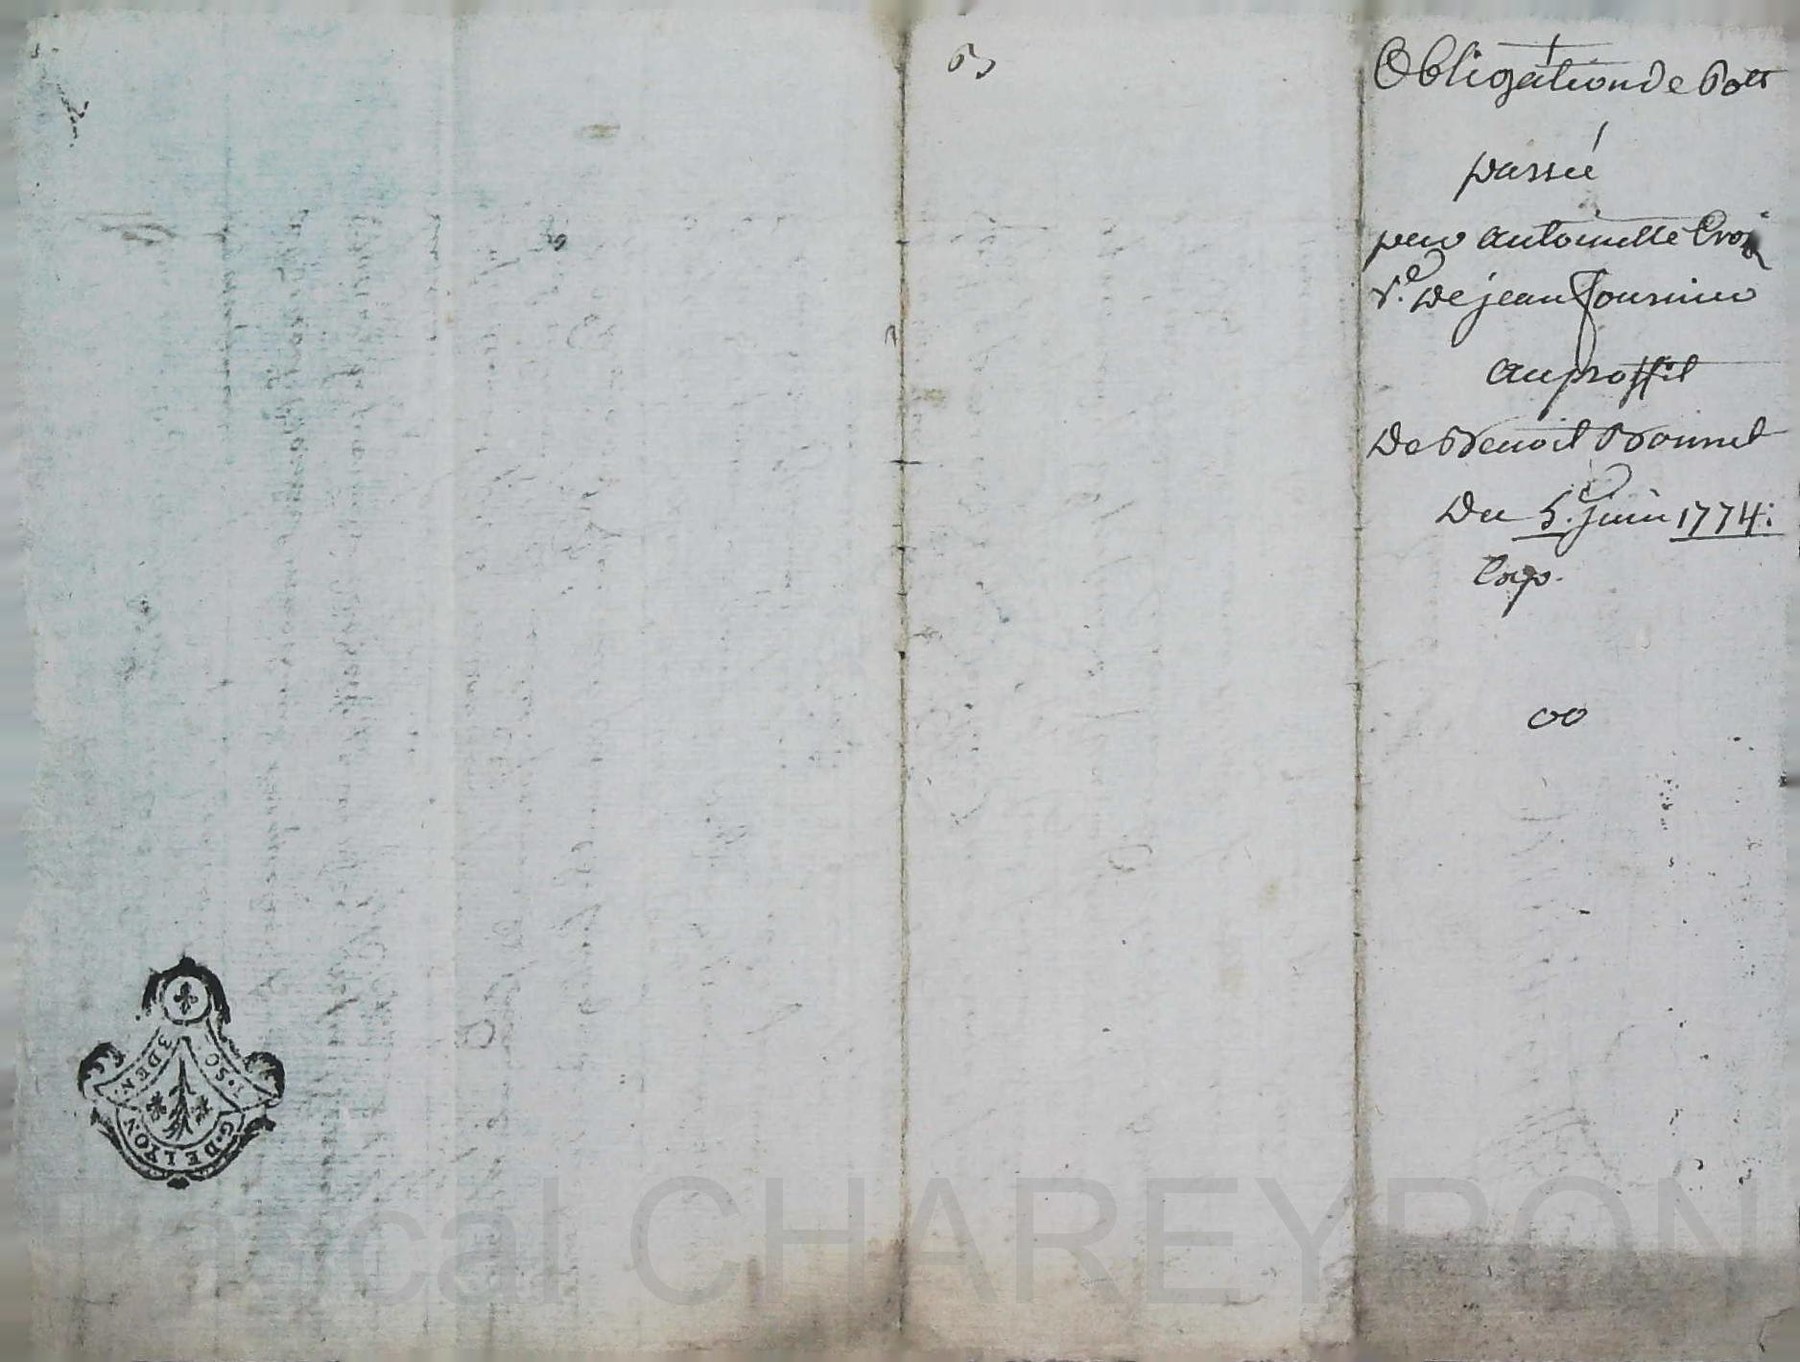 Obligation de 60 tt
passée
par antoinette Croz
Ve. de jean fournier
au proffit
de Benoit Bonnet
Du 5. juin 1774.
Exp.
1. SO
3 DEN.
G. DE LYON
Pascal CHAREYRON